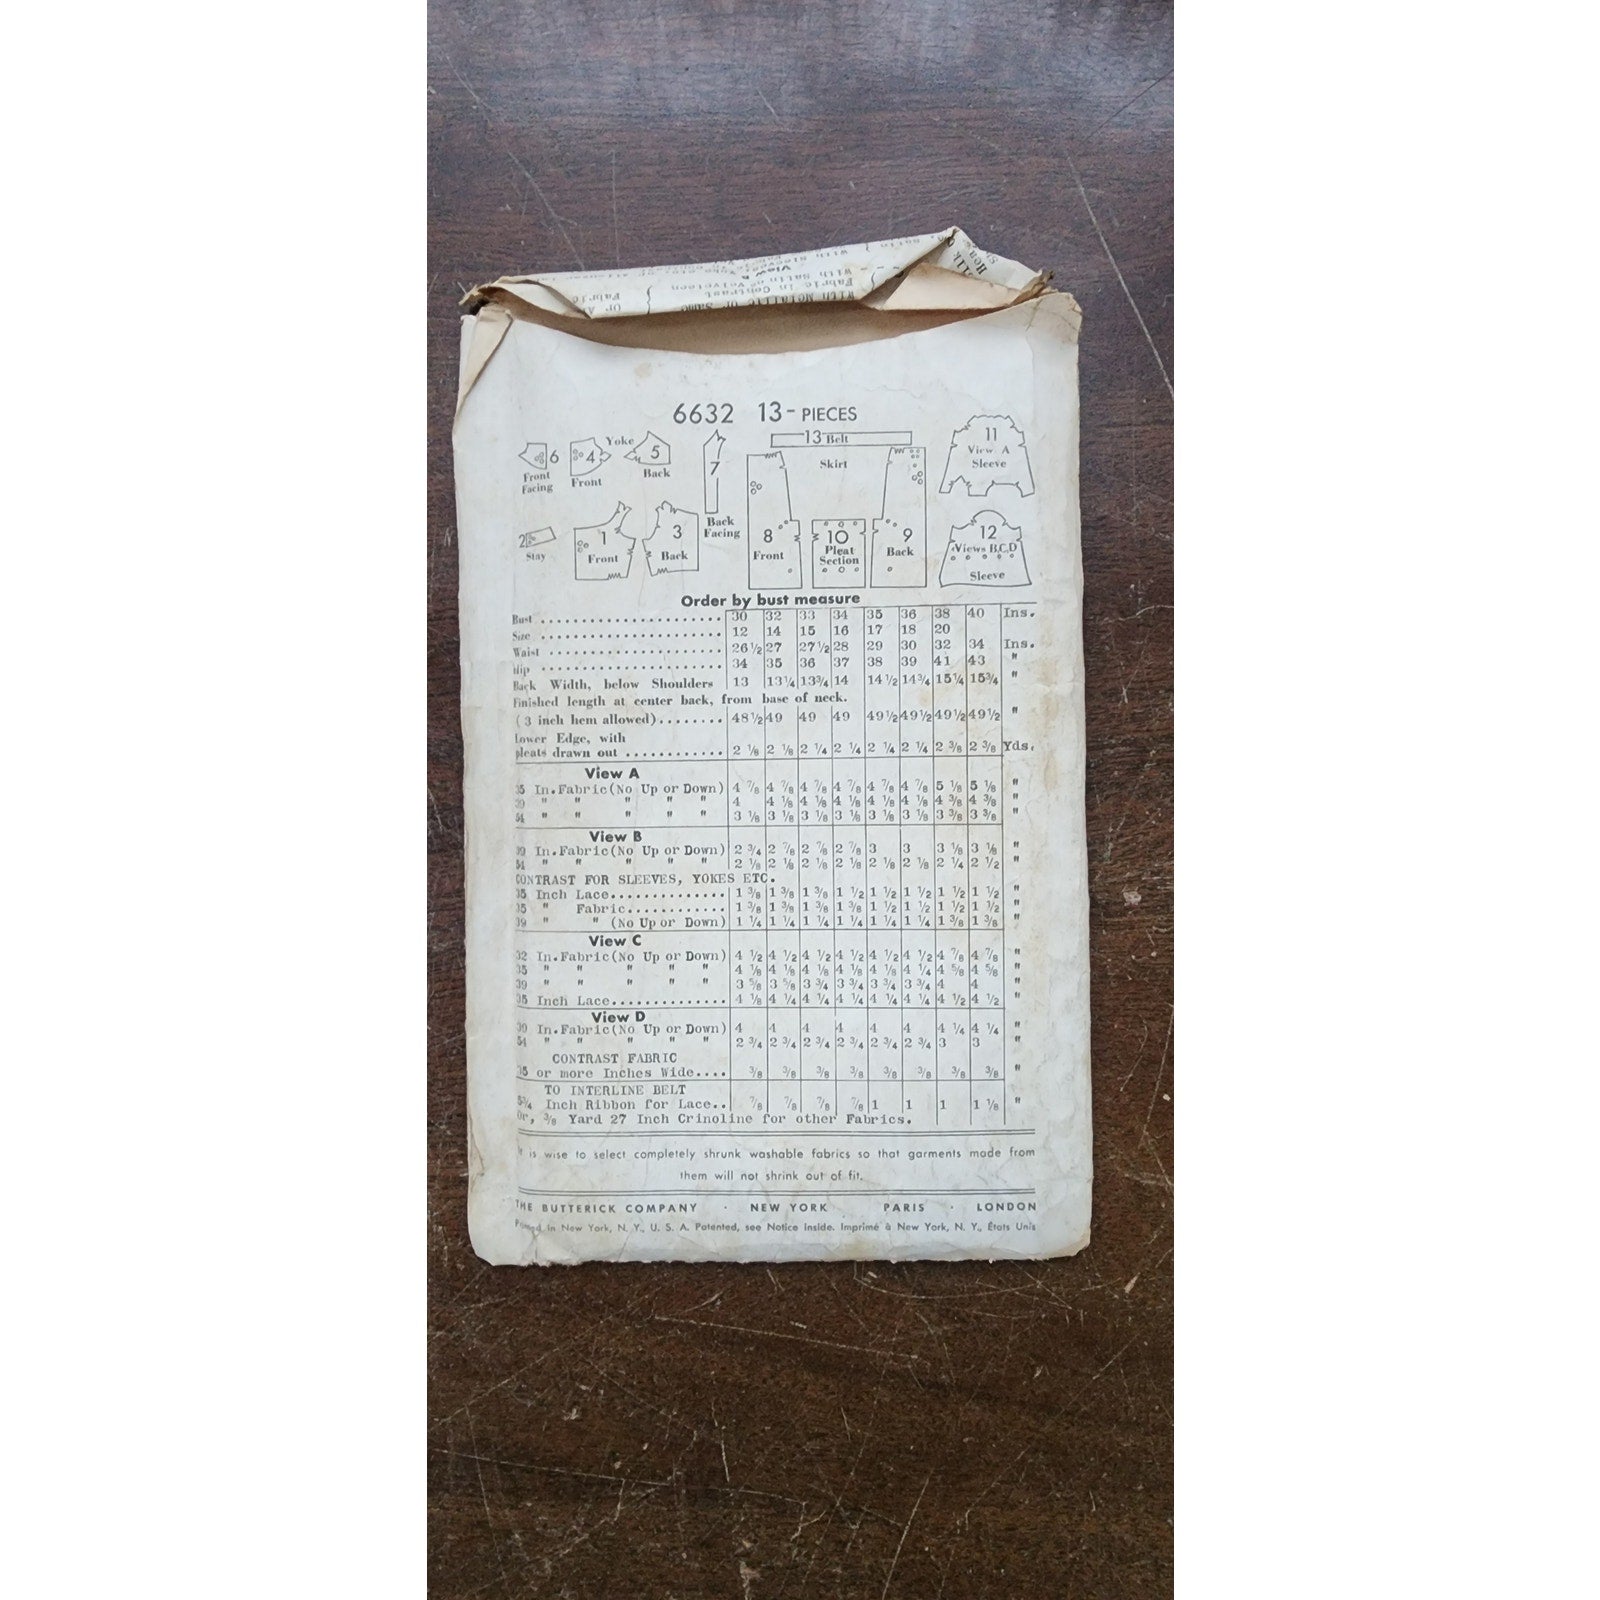 With Metallic or Same
Fabric in Contrast
With Satin or Velveteen
View B
Or A
Fabric
6632 13- PIECES
13 Belt
11
View A
Sleeve
6
Front
Facing
4
Front
Yoke
5
Back
7
Back
Facing
Skirt
2
Stay
1
Front
3
Back
8
Front
10
Pleat
Section
9
Back
12
Views B,C,D
Sleeve
Order by bust measure
Bust 30 32 33 34 35 36 38 40 Ins.
Size 12 14 15 16 17 18 20
Waist 26 1/2 27 27 1/2 28 29 30 32 34 Ins.
Hip 34 35 36 37 38 39 41 43 "
Back Width, below Shoulders 13 13 1/4 13 3/4 14 14 1/2 14 3/4 15 1/4 15 3/4 "
Finished length at center back, from base of neck.
(3 inch hem allowed) 48 1/2 49 49 49 49 1/2 49 1/2 49 1/2 49 1/2 "
Lower Edge, with
pleats drawn out 2 1/8 2 1/8 2 1/4 2 1/4 2 1/4 2 1/4 2 3/8 2 3/8 Yds.
View A
35 In. Fabric (No Up or Down) 4 7/8 4 7/8 4 7/8 4 7/8 4 7/8 4 7/8 5 1/8 5 1/8 "
39 " " " " " 4 4 1/8 4 1/8 4 1/8 4 1/8 4 1/8 4 3/8 4 3/8 "
54 " " " " " 3 1/8 3 1/8 3 1/8 3 1/8 3 1/8 3 1/8 3 3/8 3 3/8 "
View B
39 In. Fabric (No Up or Down) 2 3/4 2 7/8 2 7/8 2 7/8 3 3 3 1/8 3 1/8 "
54 " " " " " 2 1/8 2 1/8 2 1/8 2 1/8 2 1/8 2 1/8 2 1/4 2 1/2 "
CONTRAST FOR SLEEVES, YOKES ETC.
35 Inch Lace 1 3/8 1 3/8 1 3/8 1 1/2 1 1/2 1 1/2 1 1/2 1 1/2 "
35 " Fabric 1 3/8 1 3/8 1 3/8 1 3/8 1 1/2 1 1/2 1 1/2 1 1/2 "
39 " " (No Up or Down) 1 1/4 1 1/4 1 1/4 1 1/4 1 1/4 1 1/4 1 3/8 1 3/8 "
View C
32 In. Fabric (No Up or Down) 4 1/2 4 1/2 4 1/2 4 1/2 4 1/2 4 1/2 4 7/8 4 7/8 "
35 " " " " " 4 1/8 4 1/8 4 1/8 4 1/8 4 1/8 4 1/4 4 5/8 4 5/8 "
39 " " " " " 3 5/8 3 5/8 3 3/4 3 3/4 3 3/4 3 3/4 4 4 "
35 Inch Lace 4 1/8 4 1/4 4 1/4 4 1/4 4 1/4 4 1/4 4 1/2 4 1/2 "
View D
39 In. Fabric (No Up or Down) 4 4 4 4 4 4 4 1/4 4 1/4 "
54 " " " " " 2 3/4 2 3/4 2 3/4 2 3/4 2 3/4 2 3/4 3 3 "
CONTRAST FABRIC
35 or more Inches Wide 3/8 3/8 3/8 3/8 3/8 3/8 3/8 3/8 "
TO INTERLINE BELT
5 3/4 Inch Ribbon for Lace 7/8 7/8 7/8 7/8 1 1 1 1 1/8 "
Or, 3/8 Yard 27 Inch Crinoline for other Fabrics.
It is wise to select completely shrunk washable fabrics so that garments made from
them will not shrink out of fit.
THE BUTTERICK COMPANY · NEW YORK PARIS · LONDON
Printed in New York, N. Y., U. S. A. Patented, see Notice Inside. Imprimé à New York, N. Y., États Unis